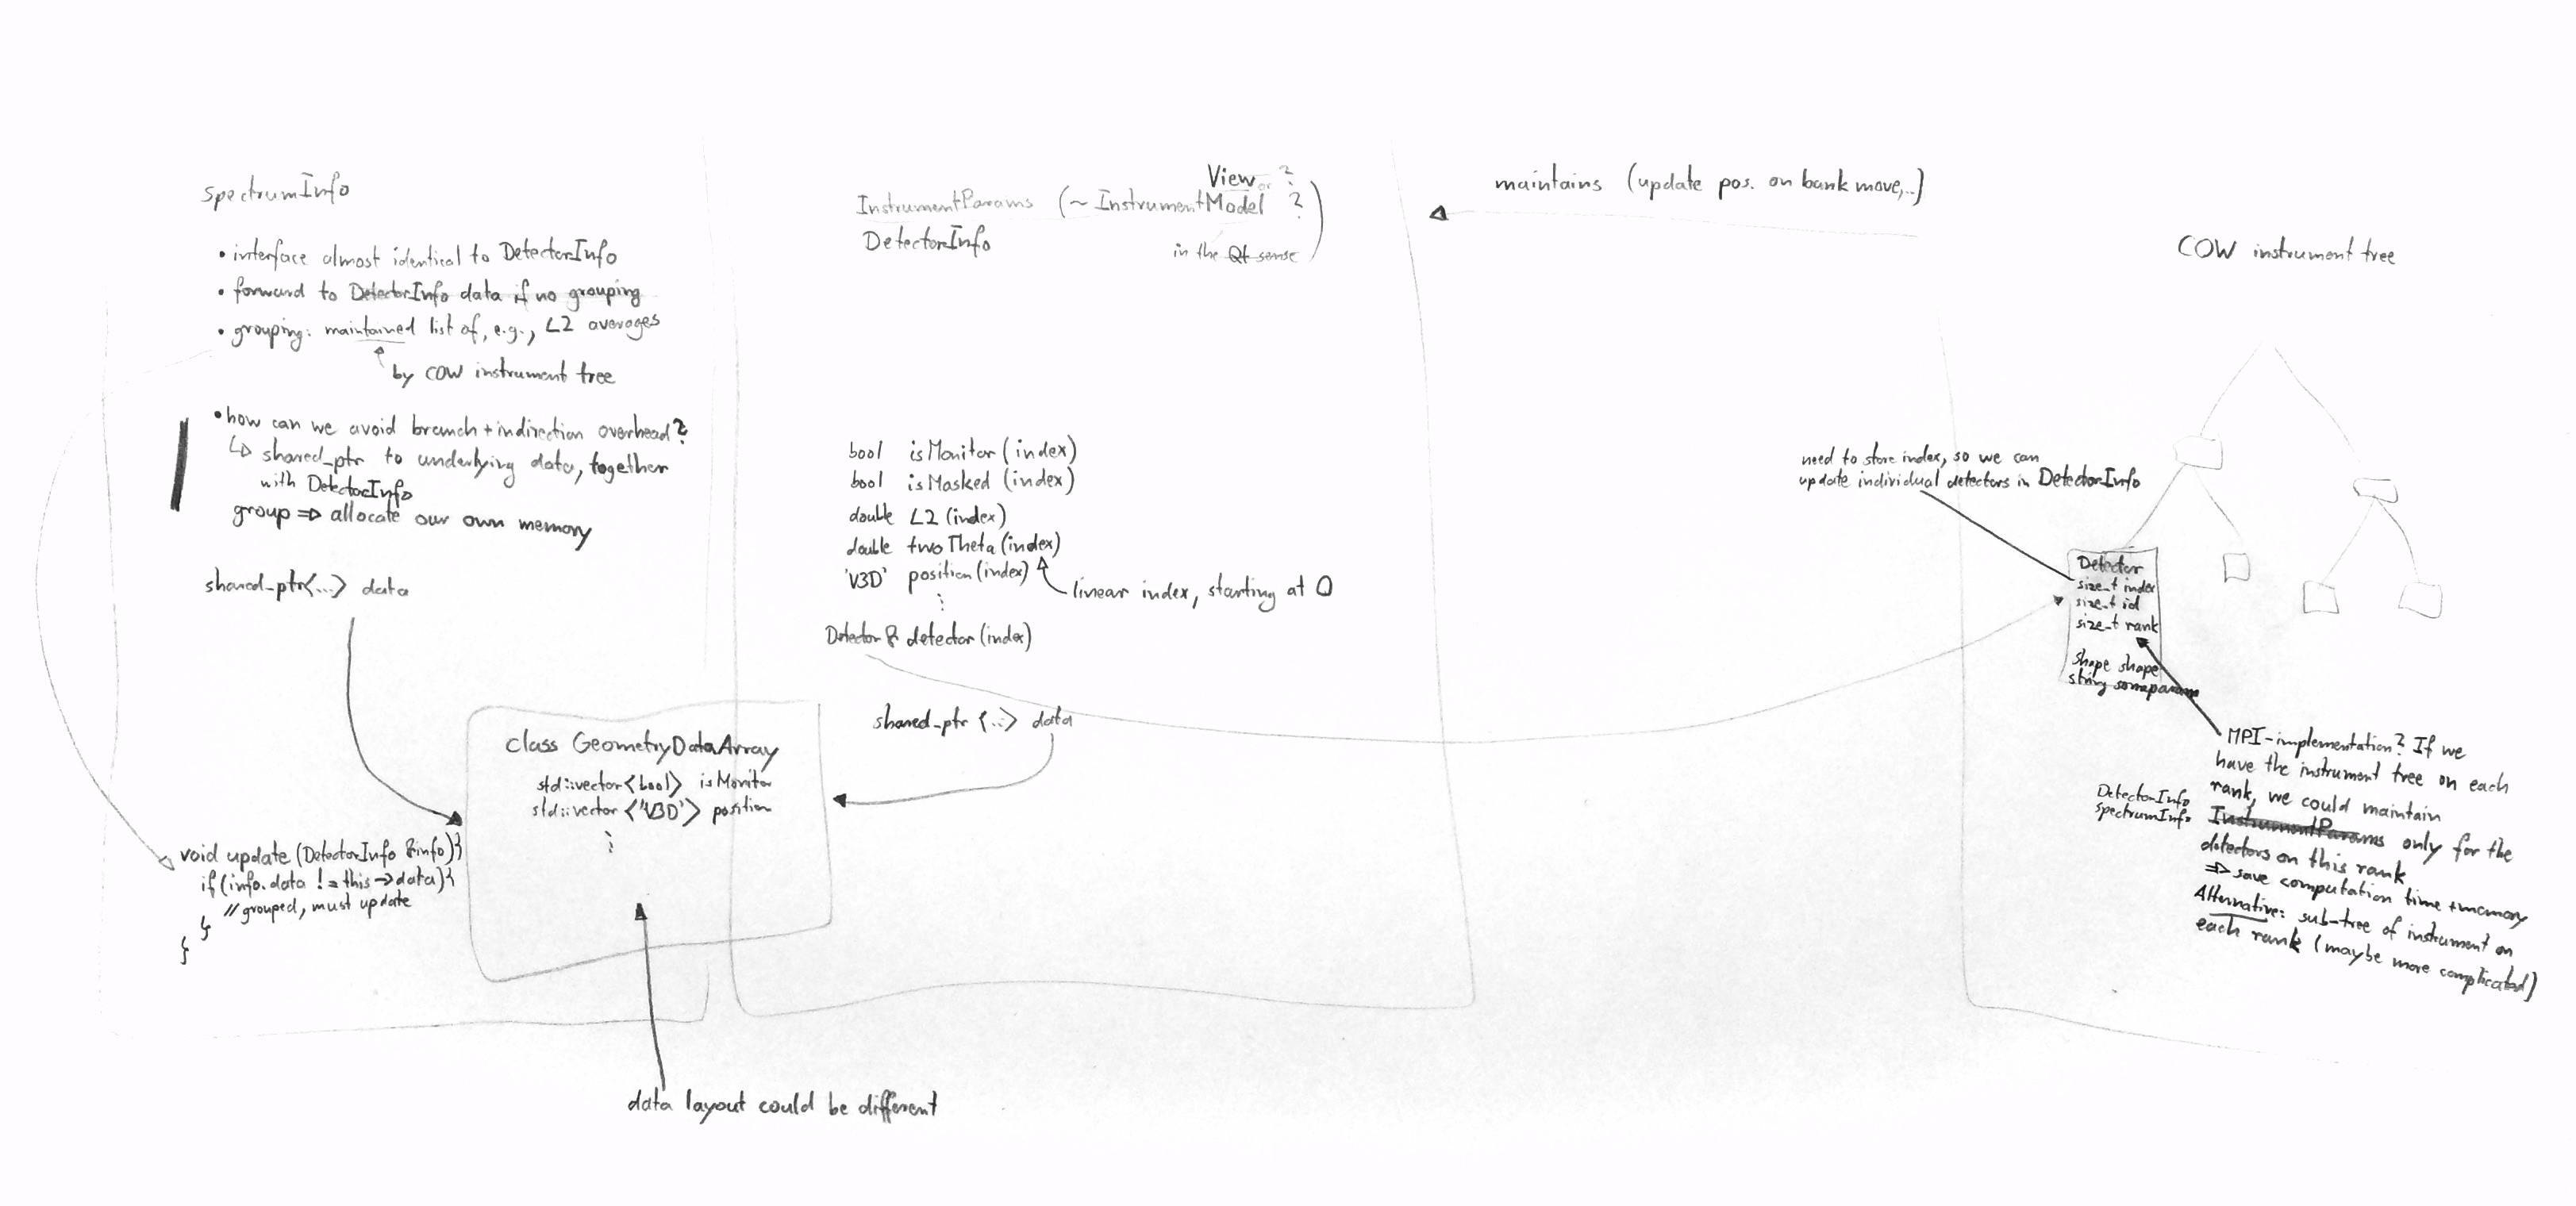 spectrumInfo
• interface almost identical to DetectorInfo
• forward to DetectorInfo data if no grouping
• grouping: maintained list of, e.g., L2 averages
by COW instrument tree
• how can we avoid branch + indirection overhead?
↳ shared_ptr to underlying data, together
with DetectorInfo
group ⇒ allocate our own memory
shared_ptr<...> data
void update (DetectorInfo &info){
if (info.data != this->data){
// grouped, must update
}
}
class GeometryDataArray
std::vector<bool> isMonitor
std::vector<'V3D'> position
⋮
data layout could be different
View or ?
InstrumentParams (~ InstrumentModel ?)
DetectorInfo
in the Qt sense
bool isMonitor (index)
bool isMasked (index)
double L2 (index)
double twoTheta (index)
'V3D' position (index)
linear index, starting at 0
⋮
Detector & detector (index)
shared_ptr <...> data
maintains (update pos. on bank move,..)
COW instrument tree
need to store index, so we can
update individual detectors in DetectorInfo
Detector
size_t index
size_t id
size_t rank
shape shape
string someparams
MPI-implementation? If we
have the instrument tree on each
rank, we could maintain
DetectorInfo
spectrumInfo
InstrumentParams only for the
detectors on this rank
⇒ save computation time + memory
Alternative: sub-tree of instrument on
each rank (maybe more complicated)